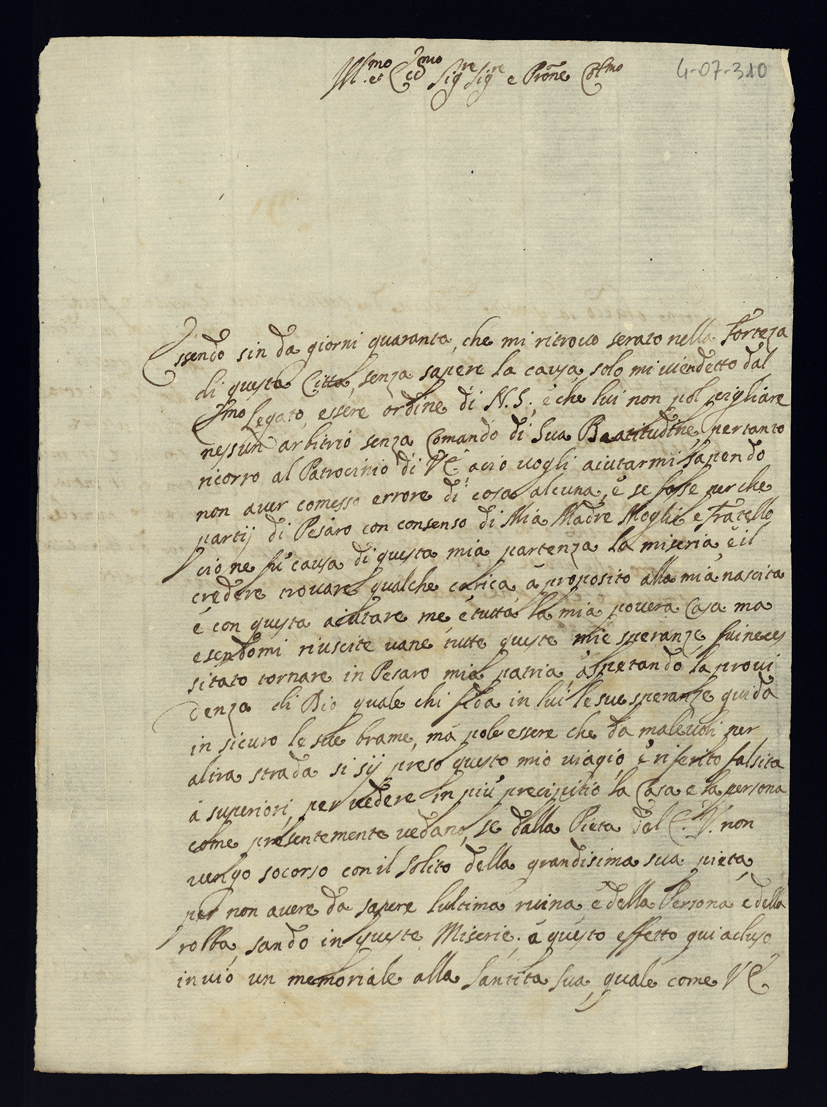 Ill.mo et Ecc.mo Sig.re Sig.re e Prone Col.mo
4-07-310
Essendo sin da giorni quaranta, che mi ritrovo serato nella Forteza
di questa Città, senza sapere la causa, solo mi vien detto dal
Em.mo Legato, essere ordine di N.S.; è che lui non pol pigliare
nessun arbitrio senza Comando di Sua Beatitudine pertanto
ricorro al Patrocinio di VE aciò vogli aiutarmi sapendo
non aver comesso errore di cosa alcuna, è se fosse perche
partij di Pesaro con consenso di Mia Madre Moglie e Fratello
cio ne fù causa di questa mia partenza la miseria, è il
credere trovare qualche carica à proposito alla mia nascita
è con questa aiutare me è tutta la mia povera Casa ma
esendomi riuscite vane tutte queste mie speranze fui neces
sitato tornare in Pesaro mia patria, aspetando la provi
denza di Dio quale chi fida in lui le sue speranze guida
in sicuro le sue brame, mà pole essere che da malevoli per
altra strada si sij preso questo mio viagio, è riferito falsita
à superiori, per vedere in più precipitio la Casa e la persona
come presentemente vedano, se dalla Pieta del non
vengo socorso con il solito della grandisima sua pietà,
per non avere da sapere l'ultima ruina è della Persona è della
robba, stando in queste Miserie. à questo effetto qui acluso
invio un memoriale alla Santità Sua, quale come VE